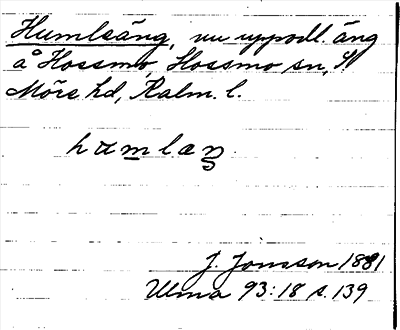 Humlsäng, nu uppodl. äng
å Hossmo, Hossmo sn, N
Möre hd, Kalm. l.
J. Jonsson 1881
Ulma 93:18 s. 139